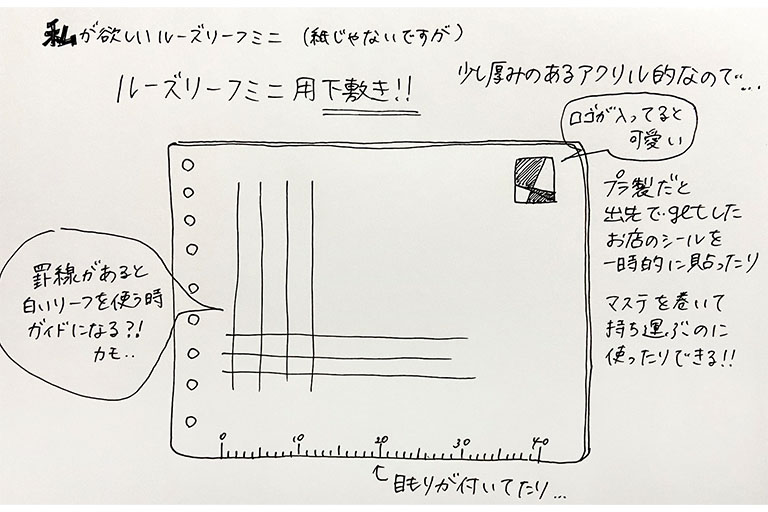 私が欲しいルーズリーフミニ (紙じゃないですが)
ルーズリーフミニ用下敷き!!
少し厚みのあるアクリル的なので...
ロゴが入ってると
可愛い
プラ製だと
出先でgetした
お店のシールを
一時的に貼ったり
マステを巻いて
持ち運ぶのに
使ったりできる!!
罫線があると
白いリーフを使う時
ガイドになる?!
カモ..
0 10 20 30 40
目もりが付いてたり...